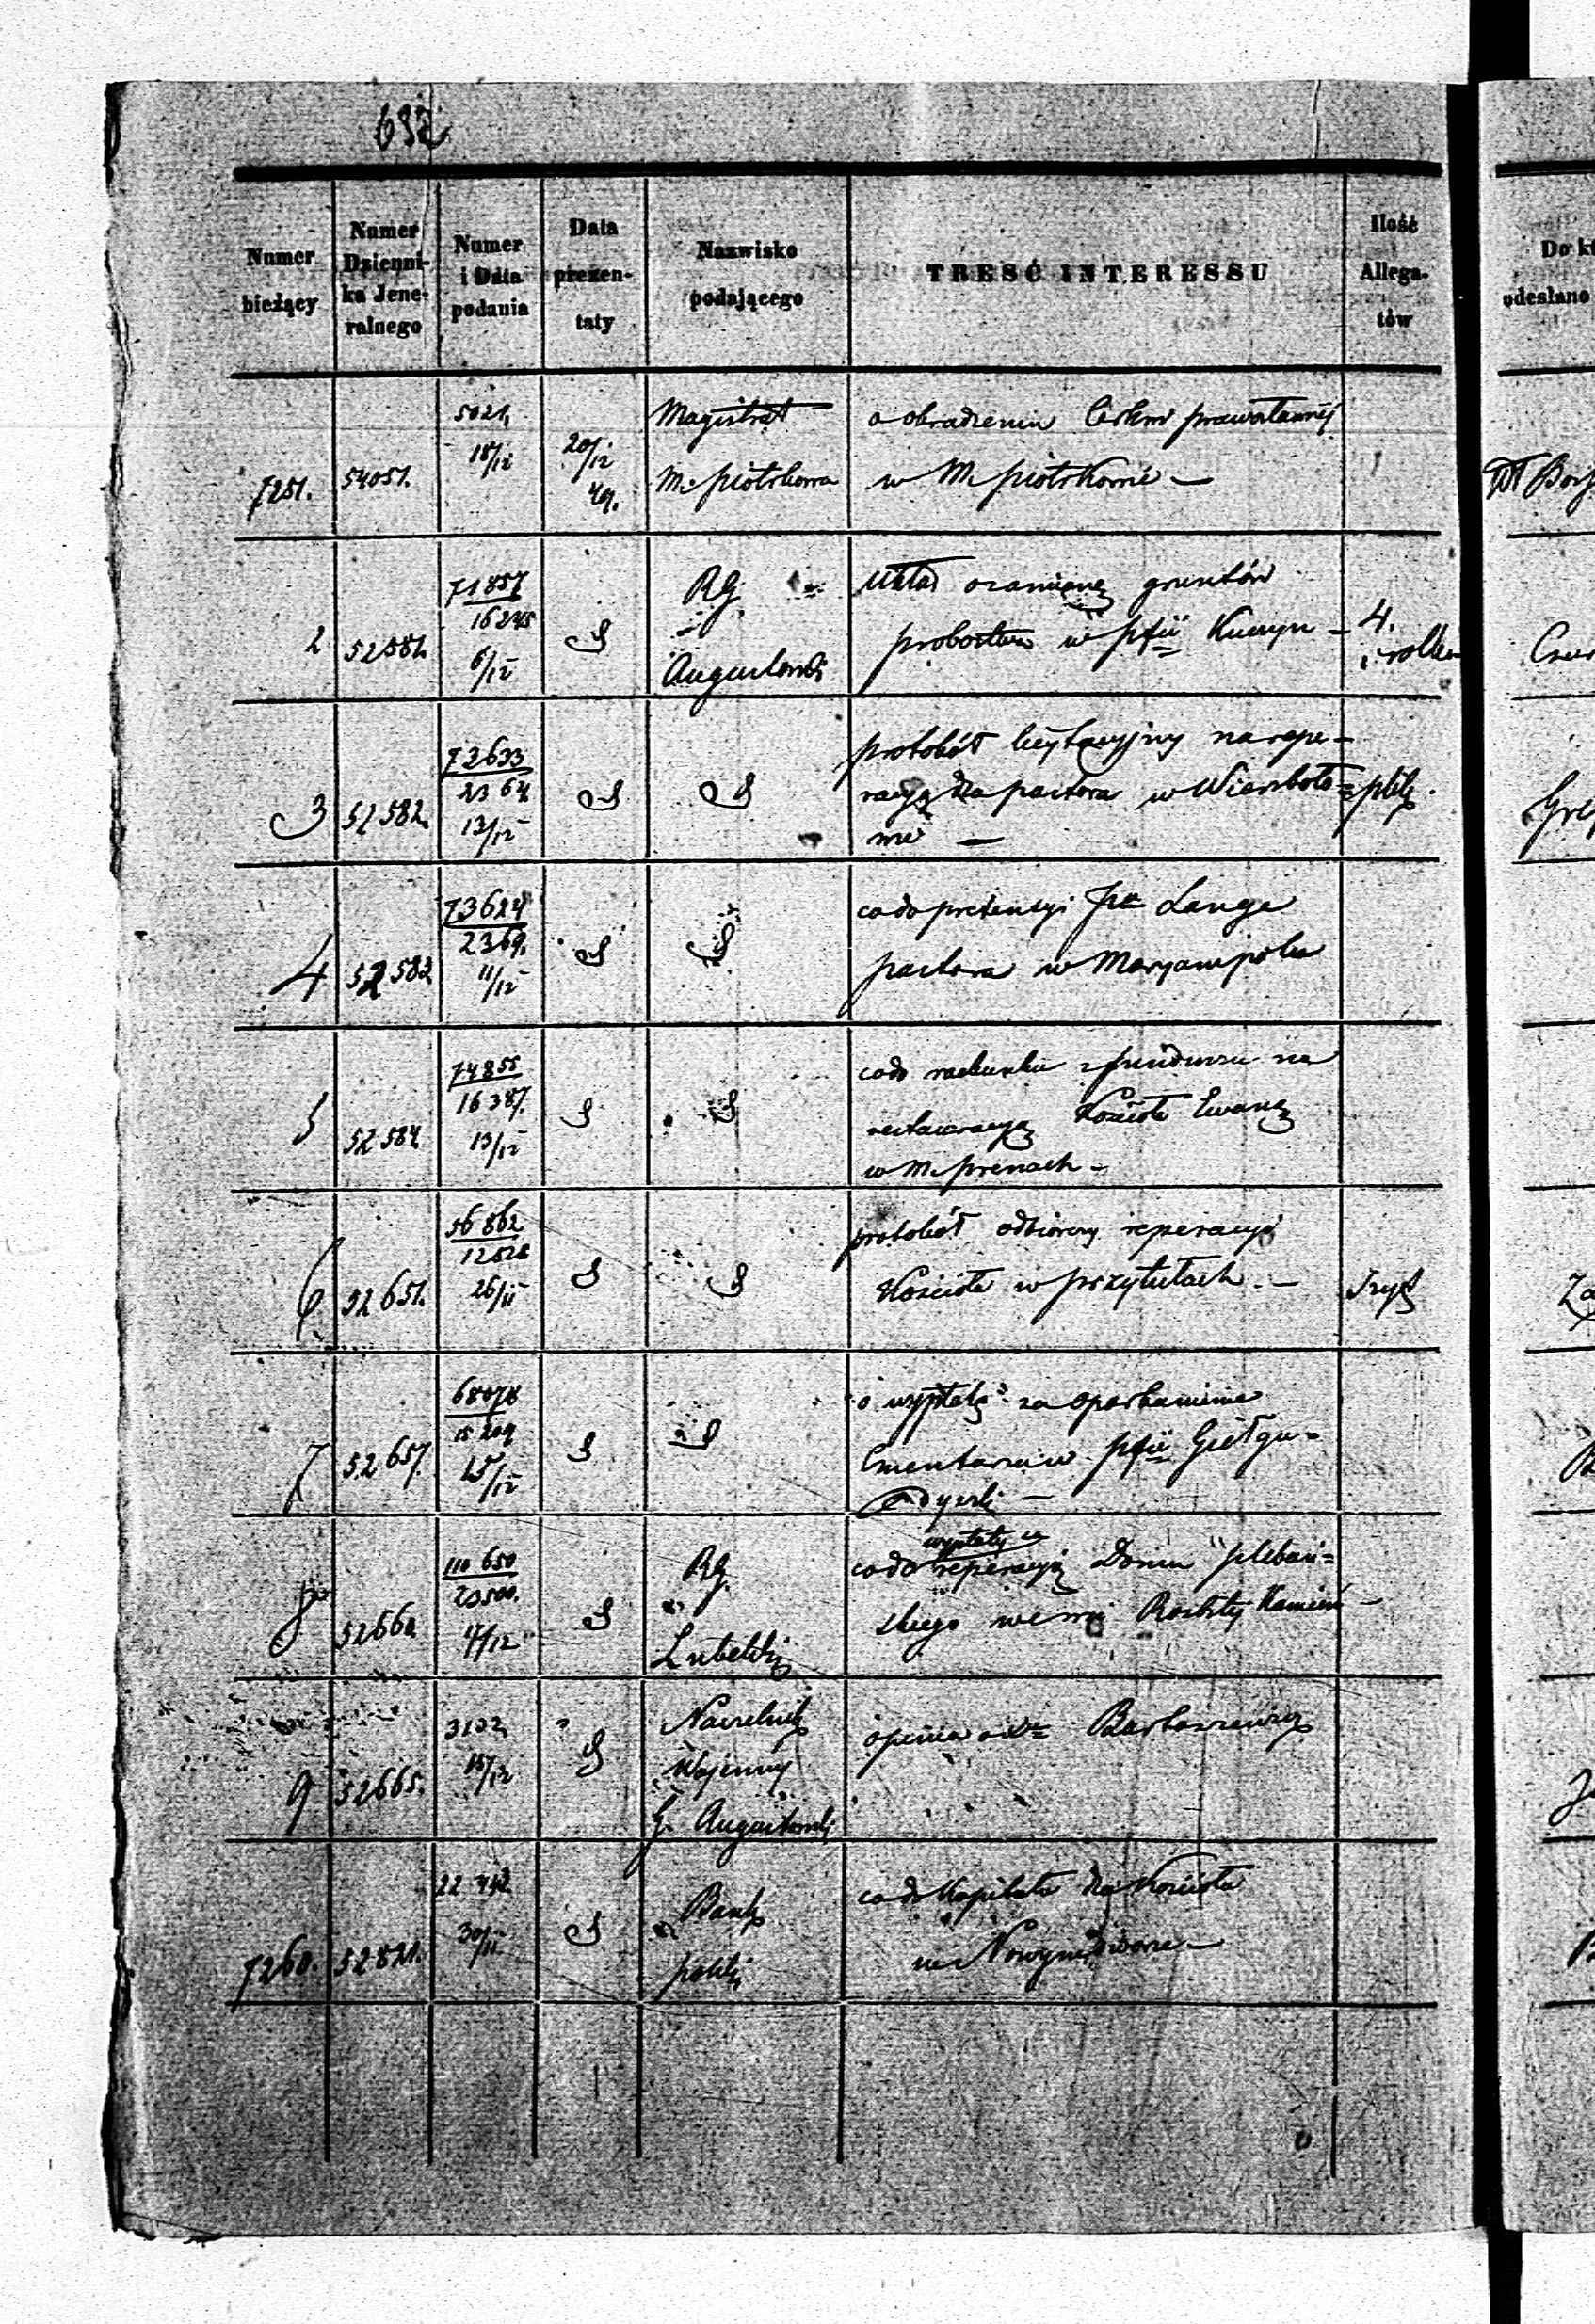 632
Numer bieżący
Numer Dzienni-ka Jene-ralnego
Numer i Data podania
Data prezen-taty
Nazwisko podającego
TREŚĆ INTERESSU
Ilość Allega-tów
Do k
odesłano
7251. 54051. 5021, 18/12 20/12 49. Magistrat
M. Piotrkowa
o obradzeniu Cerkwi prawosławnéj
w M. Piotrkowie —
1
2 52581. 71857 16245 6/12 RG.
Augustowski
Układ o zamianę gruntów
probostwa w pfii —
4.
3 52582. 72633 2364 13/12
protokół licytacyjny na repe-
racyą dla pastora w Wierzboło=
wie —
4 52583 73624 2369. 11/12
co do pretensyi Lange
pastora w Maryampolu
5 52584. 74855 16387. 13/12
co do rachunku z funduszu na
restauracyą Kościoła Ewang
w M. Prenach —
6 52651. 56862 12528 26/11
protokół odbiorczy reperacyi
Kościoła w Przytułach —
7 52657. 68078 15209 15/12
o wypłatę za oparkanienie
Cmentarza w pfii Giełgu=
dyszki —
8 52660. 110650 23500. 17/12 RG.
Lubelski
wypłaty za
co do reperacyą Domu plebań=
skiego we wsi Kamień —
9 52665. 3102, 18/12 Naczelnik
Wojenny
G. Augustowski
opinia o Bartoszewicz
7260. 52821. 22 30/11 Bank
Polski
co do Kapitału dla Kościoła
w Nowym Dworze —